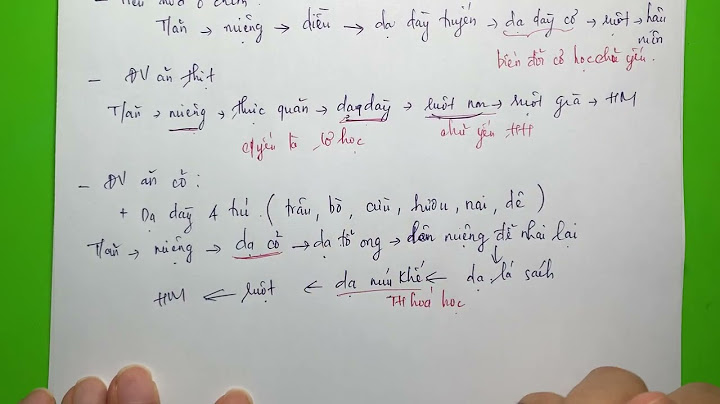 T/ăn → miệng → diều → dạ dày tuyến → dạ dày cơ → ruột → hậu
môn
biến đổi cơ học chủ yếu.
- ĐV ăn thịt
T/ăn → miệng → thực quản → dạ dày → ruột non → ruột già → HM
c/yếu là cơ học chủ yếu HH
- ĐV ăn cỏ :
+ Dạ dày 4 túi . ( trâu, bò, cừu, hươu, nai, dê )
T/ăn → miệng → dạ cỏ → dạ tổ ong → lên miệng để nhai lại
HM ← ruột ← dạ múi khế ← dạ lá sách
TH hoá học